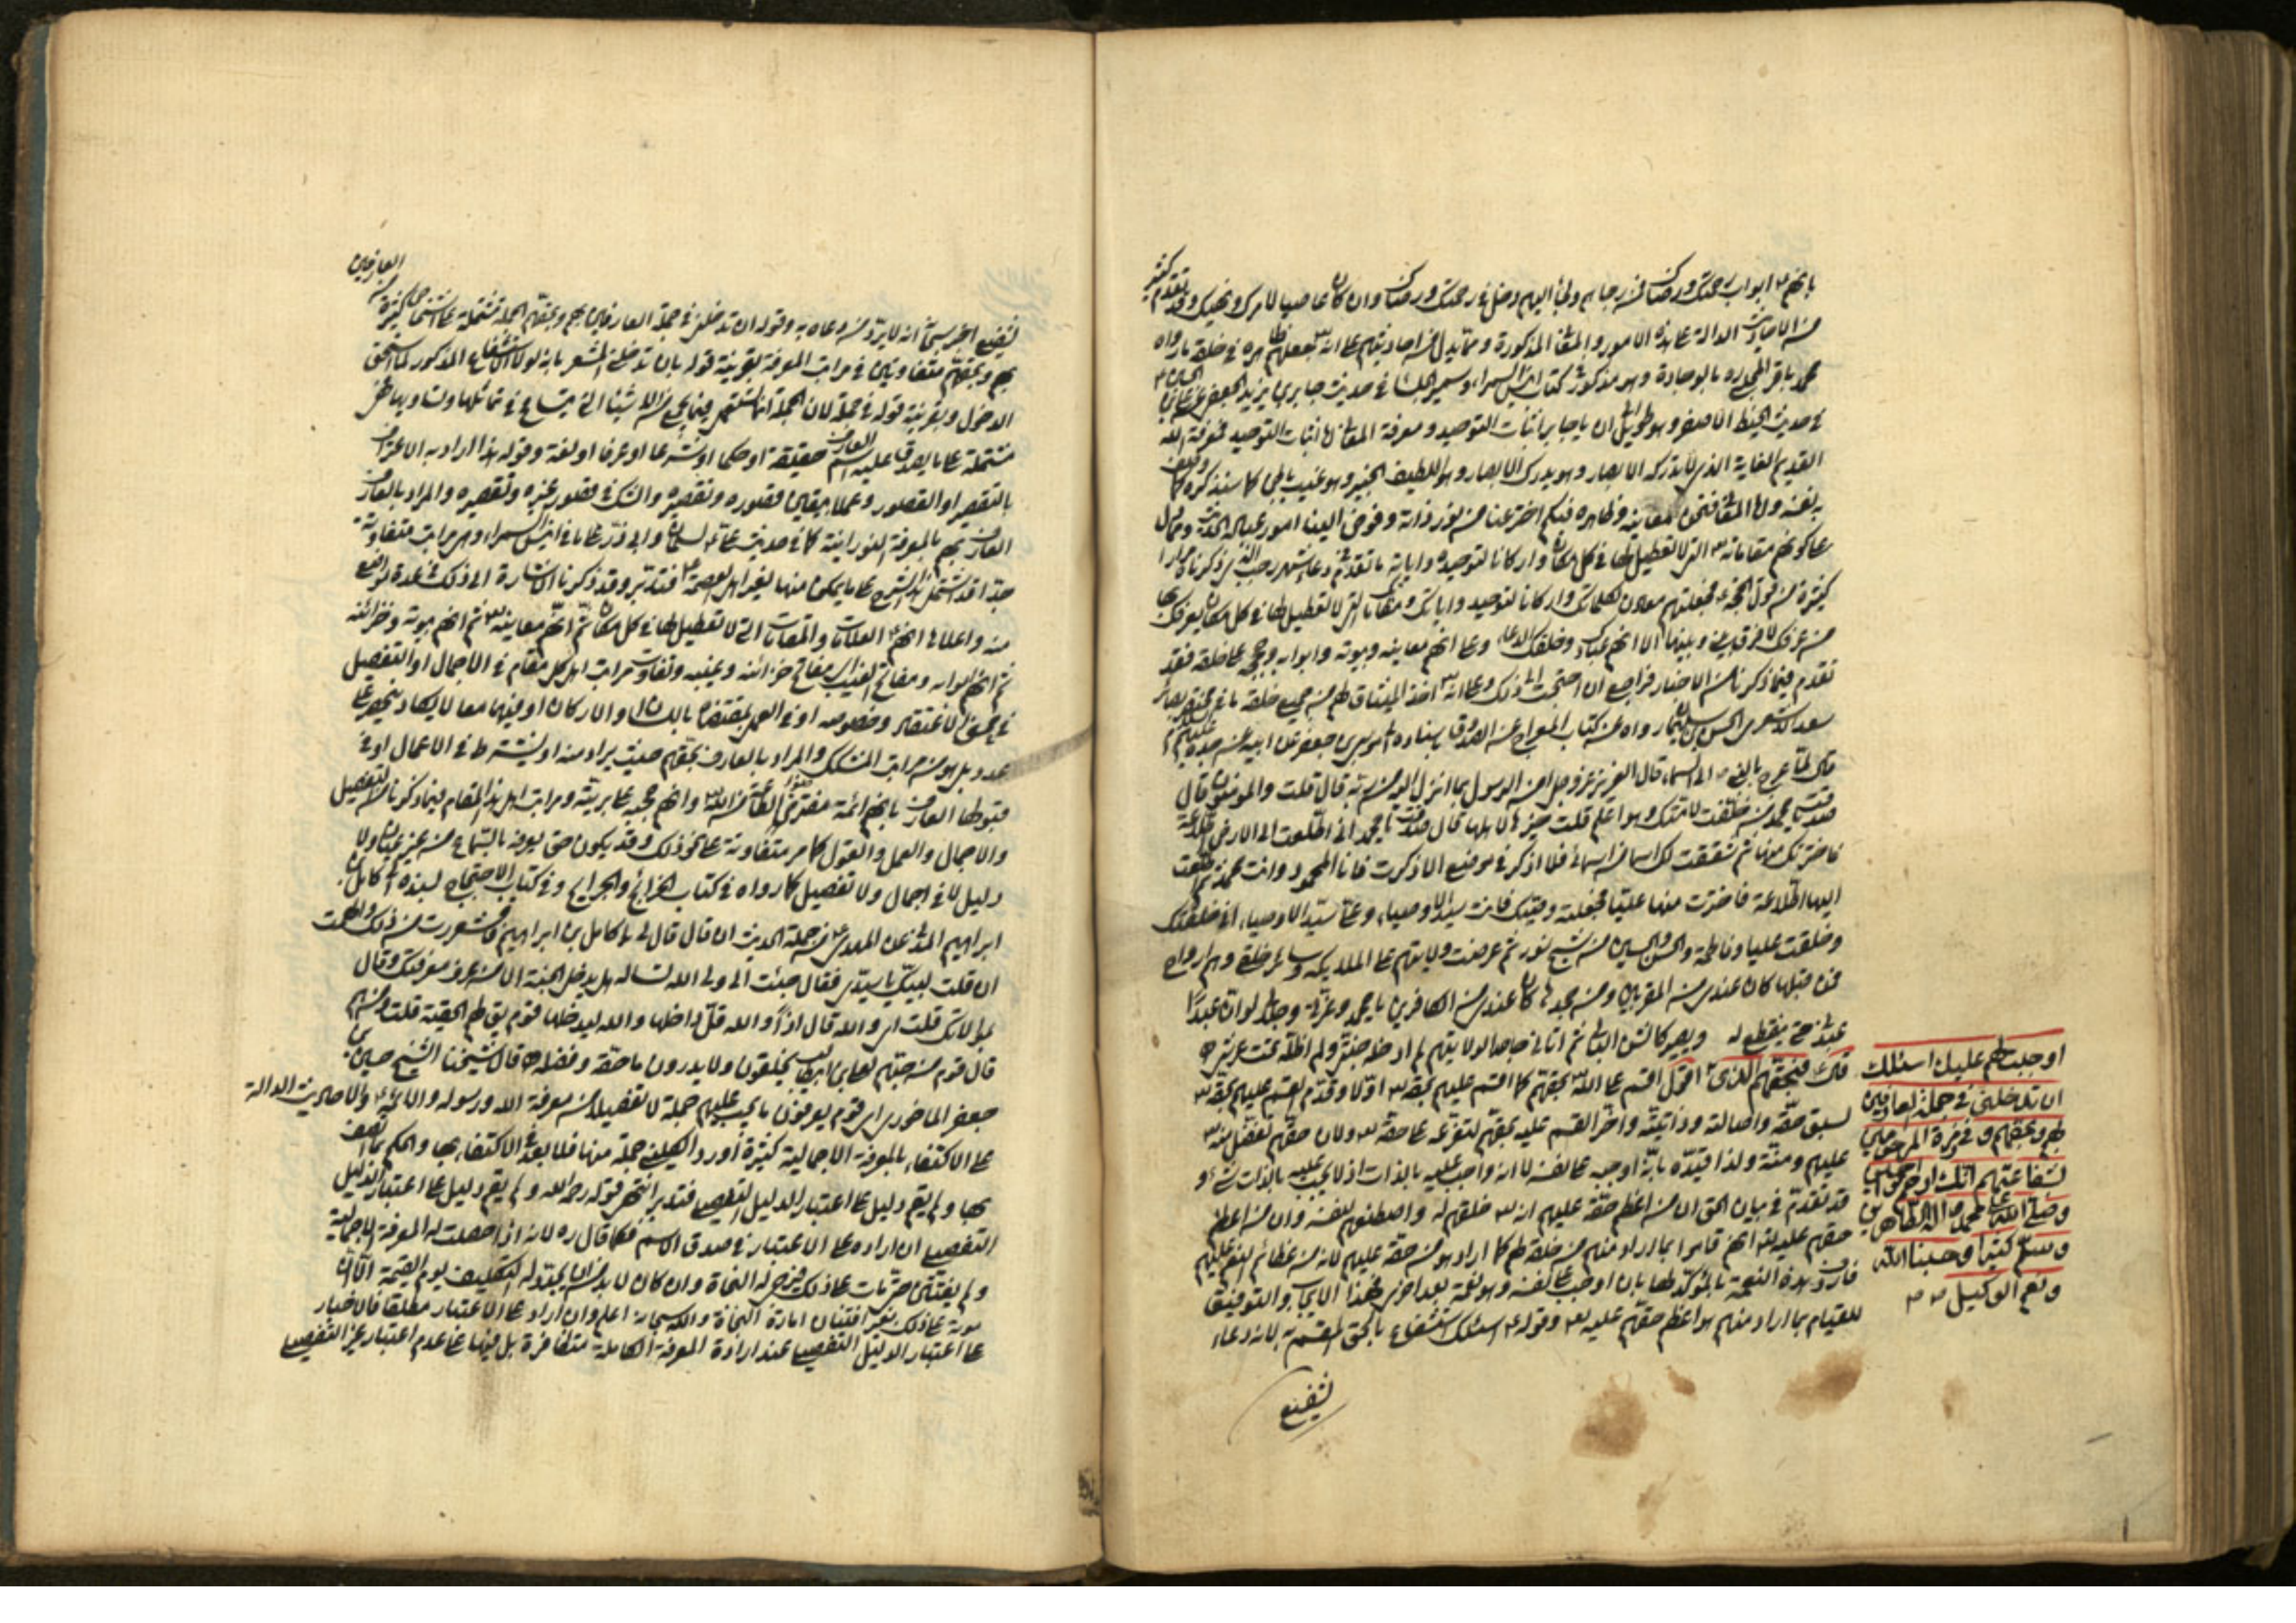 بانهم ابواب رحمتك ورضاك فمن رجاهم ولجأ اليهم دخل في رحمتك ورضاك وان كان عاصيا لامرك ونهيك وقد تقدم كثير
من الاحاديث الدالة على هذه الامور والمقامات المذكورة ومما يدل من احاديثهم على انه جعلهم مظاهره في خلقه ما رواه
محمد باقر المجلسي ره بالوجادة وهو مذكور في كتاب انيس السمراء وسمير الجلساء في حديث جابر بن يزيد الجعفي عن علي بن الحسين
في حديث الخيط الاصفر وهو طويل الى ان يا جابر اثبات التوحيد ومعرفة المعاني اما اثبات التوحيد فمعرفة الله
القديم الغاية الذي لا تدركه الابصار وهو يدرك الابصار وهو اللطيف الخبير وهو غيب باطن كما سنذكره كما وصف
به نفسه واما المعاني فنحن معانيه وظاهره فيكم اخترعنا من نور ذاته وفوض الينا امور عباده الحديث ومما يدل
على كونهم مقاماته التي لا تعطيل لها في كل مكان واركانا لتوحيده واياته ما تقدم في دعاء شهر رجب الذي ذكرناه مرارا
كثيرة من قول الحجة فجعلتهم معادن لكلماتك واركانا لتوحيدك واياتك ومقاماتك التي لا تعطيل لها في كل مكان يعرفك بها
من عرفك لا فرق بينك وبينها الا انهم عبادك وخلقك الدعاء وعلى انهم معانيه وبيوته وابوابه وحججه على خلقه فقد
تقدم فيما ذكرنا من الاخبار فراجع ان احتجت الى ذلك وعلى انه اخذ الميثاق لهم من جميع خلقه ما في مختصر بصائر
سعد الاشعري للحسن بن سليمان مما رواه من كتاب المعراج عن الصدوق باسناده الى موسى بن جعفر عن ابيه عن جده عليهم السلام
قال لما عرج بالنبي الى السماء قال العزيز عز وجل امن الرسول بما انزل اليه من ربه قال قلت والمؤمنون قال
صدقت يا محمد من خلفت لامتك وهو اعلم قلت خيرها لاهلها قال صدقت يا محمد اني اطلعت الى الارض اطلاعة
فاخترتك منها ثم شققت لك اسما من اسمائي فلا اذكر في موضع الا ذكرت فانا المحمود وانت محمد ثم اطلعت
اليها اطلاعة فاخترت منها عليا فجعلته وصيك فانت سيد الانبياء وعلي سيد الاوصياء اني خلقتك
وخلقت عليا وفاطمة والحسن والحسين من شبح نور ثم عرضت ولايتهم على الملائكة وسائر خلقي وهم ارواح
فمن قبلها كان عندي من المقربين ومن جحدها كان عندي من الكافرين يا محمد وعزتي وجلالي لو ان عبدا
عبدني حتى ينقطع له ويصير كالشن البالي ثم اتاني جاحدا لولايتهم لم ادخله جنتي ولم اظله تحت عرشي
قال فبحقهم الذي اقول اقسم على الله بحقهم كما اقسم عليهم بحقه اولا وقدم القسم عليهم بحقه
لسبق حقه واصالته وذاتيته واخر القسم عليه بحقهم لتفرعه على حقه ولان حقهم تفضل منه
عليهم ومنة ولذا قيده بانه اوجبه على نفسه لا انه واجب عليه بالذات اذ لا يجب عليه بالذات شيء و
قد تقدم في بيان الحق ان من اعظم حقه عليهم انه خلقهم له واصطنعهم لنفسه وان من اعظم
حقهم عليه انهم قاموا بما اراد منهم من خلقه لهم كما اراد وهو من حقه عليهم لانه من عظائم النعم عليهم
فاردف هذه النعمة بالمؤكد لها بان اوجب على نفسه وهو نعمة بعد اخرى فهذا الايجاب والتوفيق
للقيام بما اراد منهم هو اعظم حقهم عليه وقوله اسئلك استشفاع بالحق المقسم به لانه دعاء
تشفيع
اوجبت لهم عليك اسئلك
ان تدخلني في جملة العارفين
بهم وبحقهم وفي زمرة المرحومين
بشفاعتهم انك ارحم الراحمين
وصلى الله على محمد واله الطاهرين
وسلم كثيرا وحسبنا الله
ونعم الوكيل
العارفين
تشفيع اخبر سبحانه انه لا يرد من دعاه به وقوله ان تدخلني في جملة العارفين بهم وبحقهم الجملة مشتملة على اشخاص كثيرة
بهم وبحقهم متفاوتين في مراتب المعرفة بقرينة قوله بان تدخلني المشعر بانه لولا الاستشفاع المذكور لما استحق
الدخول وبقرينة قوله في جملة لان الجملة انما تستعمل فيما يجمع من الاشياء التي يتسامح في تماثلها وتساويها
مشتملة على ما يصدق عليه اسم العارف حقيقة او حكما او شرعا او عرفا او لغة وقوله هذا اراد به الاعتراف
بالتقصير او القصور وعملا بيقين قصوره وتقصيره والشك في قصور غيره وتقصيره والمراد بالعارف
العارف بهم بالمعرفة النورانية كما في حديث علي لسلمان وابي ذر على ما في انيس السمراء وهي مراتب متفاوتة
جدا قد اشتمل هذا الشرح على ما يمكن منها لغير اهل العصمة فتدبر وقد ذكرنا الاشارة الى ذلك في عدة مواضع
منه واعلاها انهم العلامات والمقامات التي لا تعطيل لها في كل مكان ثم انهم معانيه ثم انهم بيوته وخزائنه
ثم انهم ابوابه ومفاتح الغيب اي مفاتح خزائنه وغيبه وتفاوت مراتب اهل كل مقام في الاجمال او التفصيل
في محض الاعتقاد وخصوصه او في العمل بمقتضاه باللسان والاركان او فيهما معا لا يكاد ينحصر على
عدد بل هو من مراتب المشكك والمراد بالعارف بحقهم حيث يراد منه او يشترط في الاعمال او في
قبولها العارف بانهم ائمة مفترضوا الطاعة من الله وانهم حججه على بريته ومراتب اهل هذا المقام فيما ذكرنا من التفصيل
والاجمال والعمل والقول كما مر متفاوتة على نحو ذلك وقد يكون حتى يعرفه بالتسامع من غير عيان ولا
دليل لا في اجمال ولا تفصيل كما رواه في كتاب الخرائج والجرايح وفي كتاب الاحتجاج لسنده الى كامل بن
ابراهيم المدني عن المهدي من جملة الحديث ان قال قال لي يا كامل بن ابراهيم فاقشعررت من ذلك والهمت
ان قلت لبيك يا سيدي فقال جئت الى ولي الله تساله هل يدخل الجنة الا من عرف معرفتك وقال
بمقالتك قلت اي والله قال اذا والله قل داخلها والله ليدخلها قوم يق لهم الحقية قلت ومن هم
قال قوم من حبهم لعلي بن ابيطالب يحلفون بحقه ولا يدرون ما حقه وفضله قال شيخنا الشيخ حسين بن
جعفر الماحوزي اي قوم يعرفون ما يجب عليهم جملة لا تفصيلا من معرفة الله ورسوله والائمة والاحاديث الدالة
على الاكتفاء بالمعرفة الاجمالية كثيرة اورد الكليني جملة منها فلا بعد في الاكتفاء بها والحكم بما اتصف
بها ولم يقم دليل على اعتبار الدليل التفصيلي فتدبر انتهى قوله رحمه الله ولم يقم دليل على اعتبار الدليل
التفصيلي ان اراد به على الاعتبار في صدق الاسم فكما قال ره لانه اذا حصلت له المعرفة الاجمالية
ولم يفتتن حتى مات على ذلك فيرجى له النجاة وان كان لا بد من ان يجدد له التكليف يوم القيمة الا ان
موته على ذلك بغير افتتان امارة النجاة والله سبحانه اعلم وان اراد على الاعتبار مطلقا فالاخبار
على اعتبار الدليل التفصيلي عند ارادة المعرفة الكاملة متظافرة بل فيها على عدم اعتبار غير التفصيلي